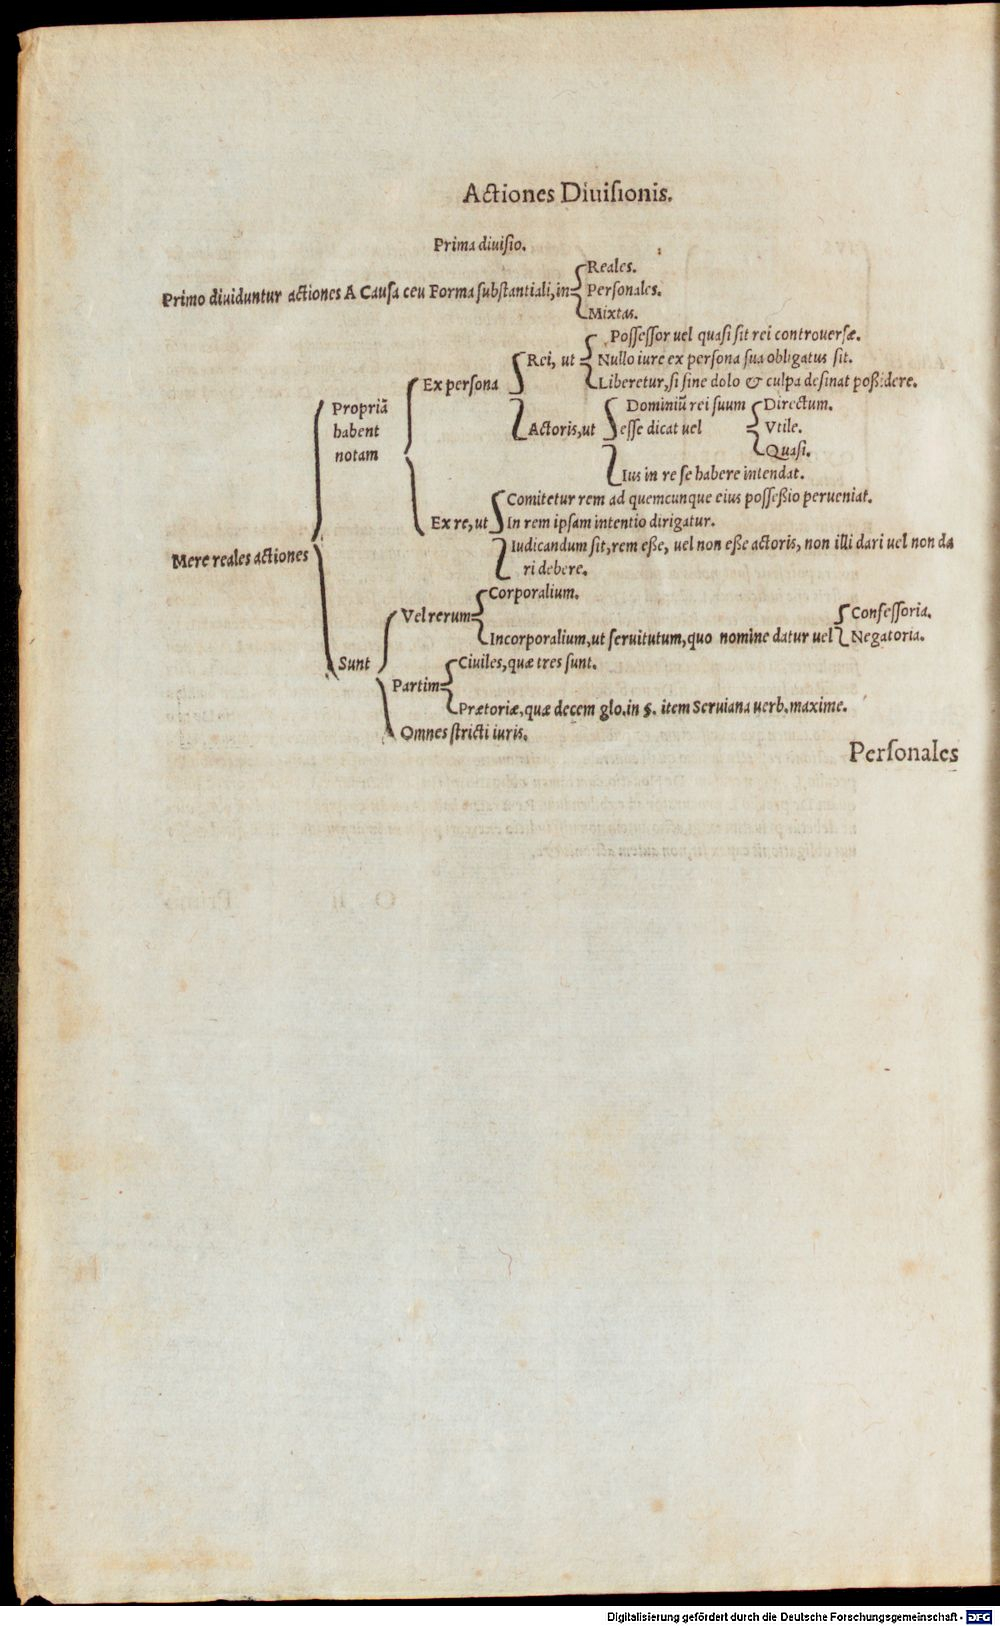 Actiones Diuiſionis.
Prima diuiſio.
Reales.
Primo diuiduntur actiones A Cauſa ceu Forma ſubſtantiali, in
Perſonales.
Mixtas.
Poſſeſſor uel quaſi ſit rei controuerſæ.
Rei, ut
Nullo iure ex perſona ſua obligatus ſit.
Ex perſona
Liberetur, ſi ſine dolo & culpa deſinat poßidere.
Propriā
habent
notam
Actoris, ut
Dominiū rei ſuum
eſſe dicat uel
Directum.
Vtile.
Quaſi.
Ius in re ſe habere intendat.
Comitetur rem ad quemcunque eius poſſeßio perueniat.
Ex re, ut
In rem ipſam intentio dirigatur.
Iudicandum ſit, rem eße, uel non eße actoris, non illi dari uel non da
ri debere.
Mere reales actiones
Corporalium.
Vel rerum
Incorporalium, ut ſeruitutum, quo nomine datur uel
Confeſſoria.
Negatoria.
Sunt
Ciuiles, quæ tres ſunt.
Partim
Prætoriæ, quæ decem glo. in §. item Seruiana uerb. maxime.
Omnes ſtricti iuris.
Perſonales
Digitalisierung gefördert durch die Deutsche Forschungsgemeinschaft - DFG